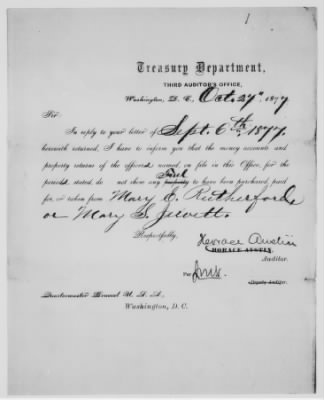 1
Treasury Department,
THIRD AUDITOR'S OFFICE,
Washington, D. C., Oct. 27th 1877
Sir:
In reply to your letter of Sept. 6th, 1877.
herewith returned, I have to inform you that the money accounts and
property returns of the officers named, on file in this Office, for the
periods stated do not show any property to have been purchased, paid
for, or taken from Mary E. Rutherford
or Mary S. Jewett.
Respectfully,
Horace Austin
HORACE AUSTIN,
Auditor.
Per
Deputy Auditor.
Quartermaster General U. S. A.,
Washington, D. C.